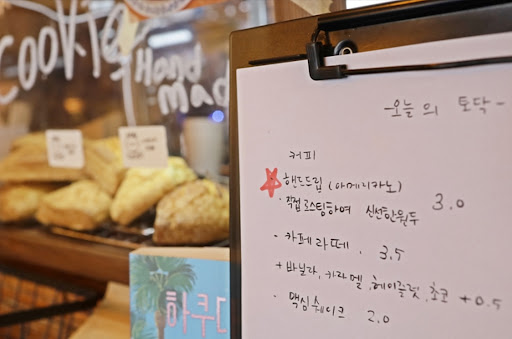 COOKIE
Hand
mad
-오늘의 토닥-
커피
핸드드립 (아메리카노)
· 직접 로스팅하여 신선한 원두 3.0
· 카페라떼. 3.5
+ 바닐라, 카라멜, 헤이즐넛, 초코 +0.5
· 맥심쉐이크 2.0
하쿠